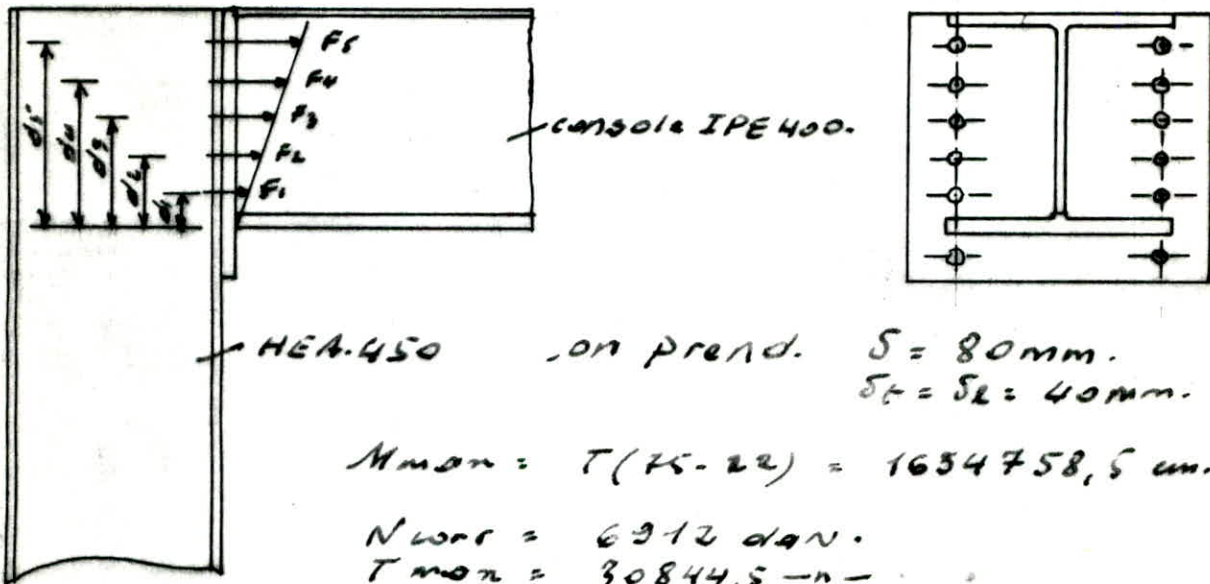 F5
F4
F3
F2
F1
d5
d4
d3
d2
d1
console IPE 400.
HEA.450
on prend. S = 80mm.
St = Sl = 40mm.
Mman = T(75-22) = 1634758,5 cm.
Ncorr = 6912 daN.
Tman = 30844,5 -n-